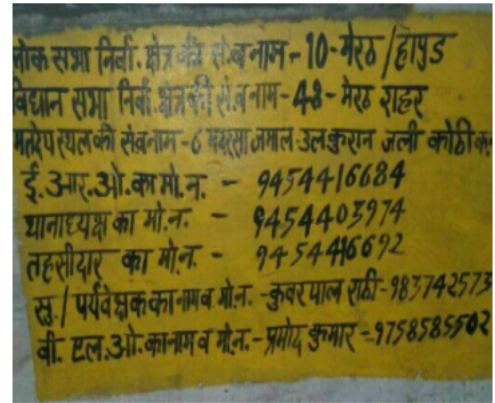 लोक सभा निर्वा. क्षेत्र की सं.व नाम - 10 - मेरठ / हापुड
विधान सभा निर्वा. क्षेत्र की सं.व नाम - 48 - मेरठ शहर
स्थल की सं.व नाम - 6 मदरसा जमाल उल कुरान जली कोठी
ई. आर. ओ. का मो. न. - 9454416684
थानाध्यक्ष का मो. न. - 9454403974
तहसीदार का मो.न. - 9454416692
सु. / पर्यवेक्षक का नाम व मो.न. - कुवरपाल राठी - 983742573
बी. एल. ओ. का नाम व मो.न. - प्रमोद कुमार - 9758585502